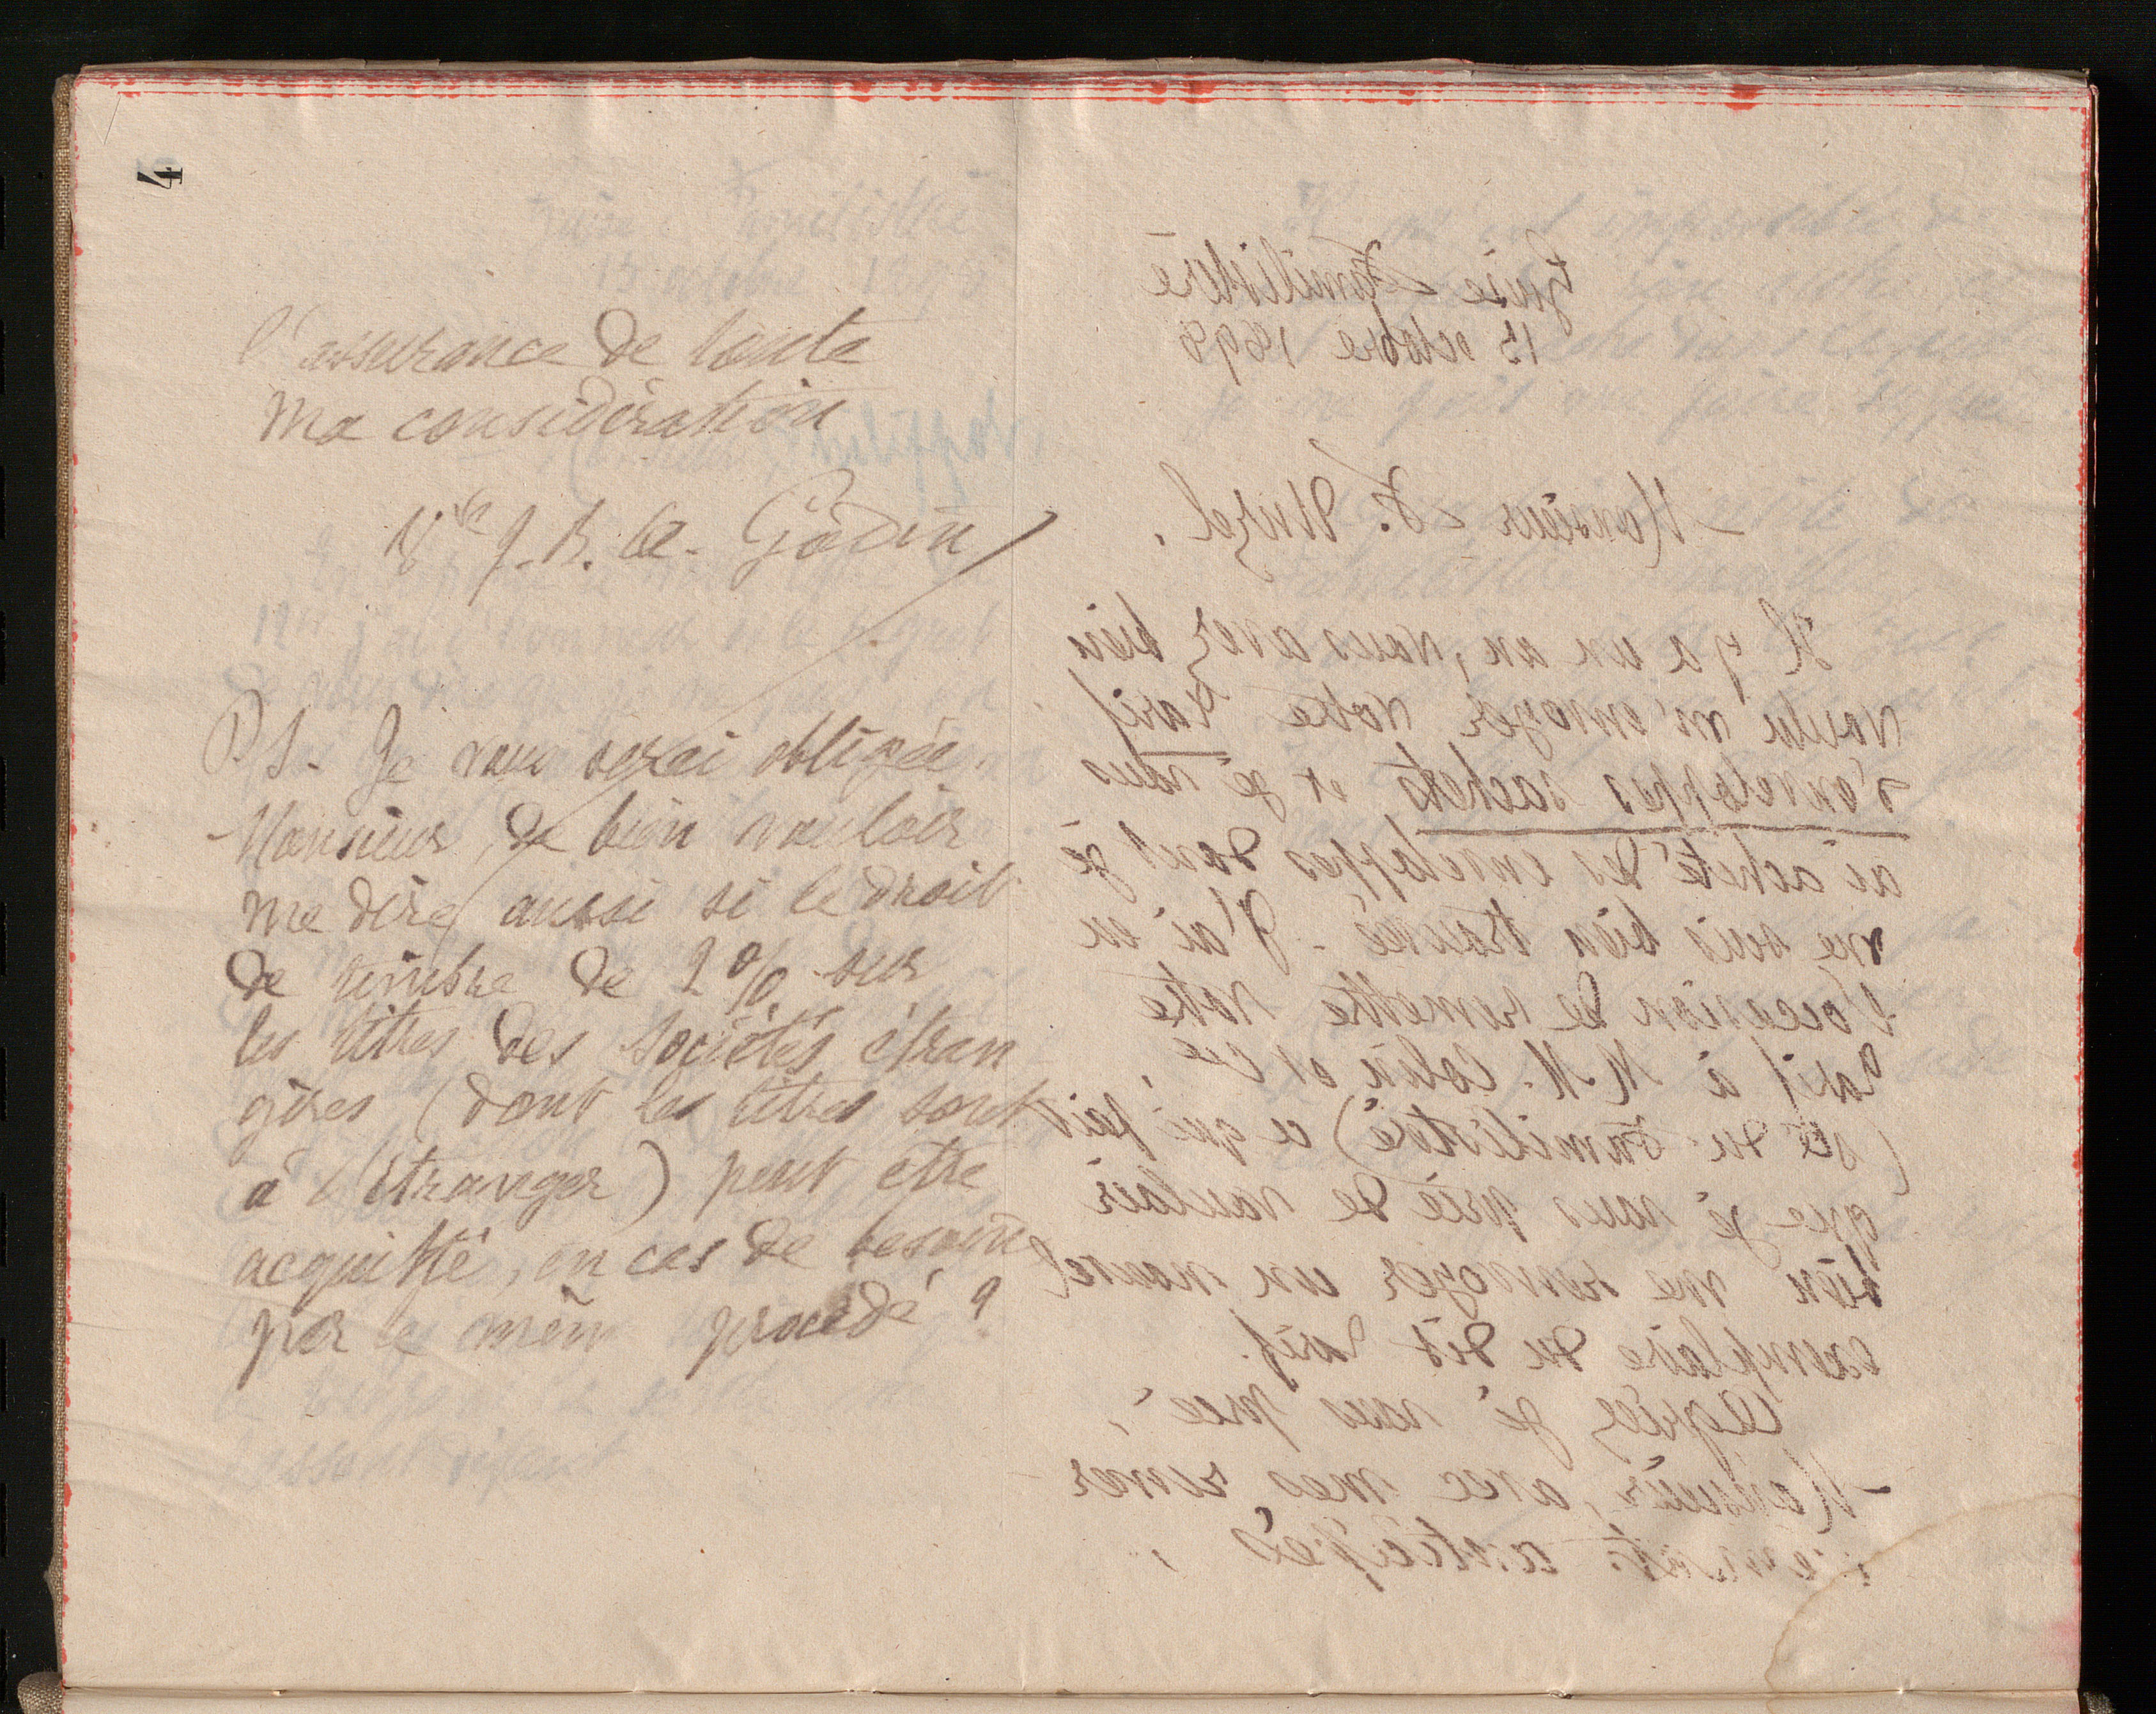 4
l'assurance de toute
ma considération
Vve J. B. A. Godin
P.S. Je vous serai obligée,
Monsieur, de bien vouloir
me dire aussi si le droit
de timbre de 2 % sur
les titres des sociétés étran
gères (dont les titres sont
à l'étranger) peut être
acquitté, en cas de besoin
par le même procédé ?
Guise Familistère
15 octobre 1898
Monsieur F. Wurzel.
Il y a un an, vous avez bien
voulu m'envoyer votre tarif
d'enveloppes sachets et je vous
ai acheté des enveloppes dont je
me suis bien trouvée. J'ai eu
l'occasion de remettre votre
tarif à M.M. Colin et Cie,
(Sté du Familistère) ce qui fait
que je vous prie de vouloir
bien me renvoyer un nouvel
exemplaire du dit tarif.
Agréez je vous prie,
Monsieur, avec mes remer
ciements anticipés,